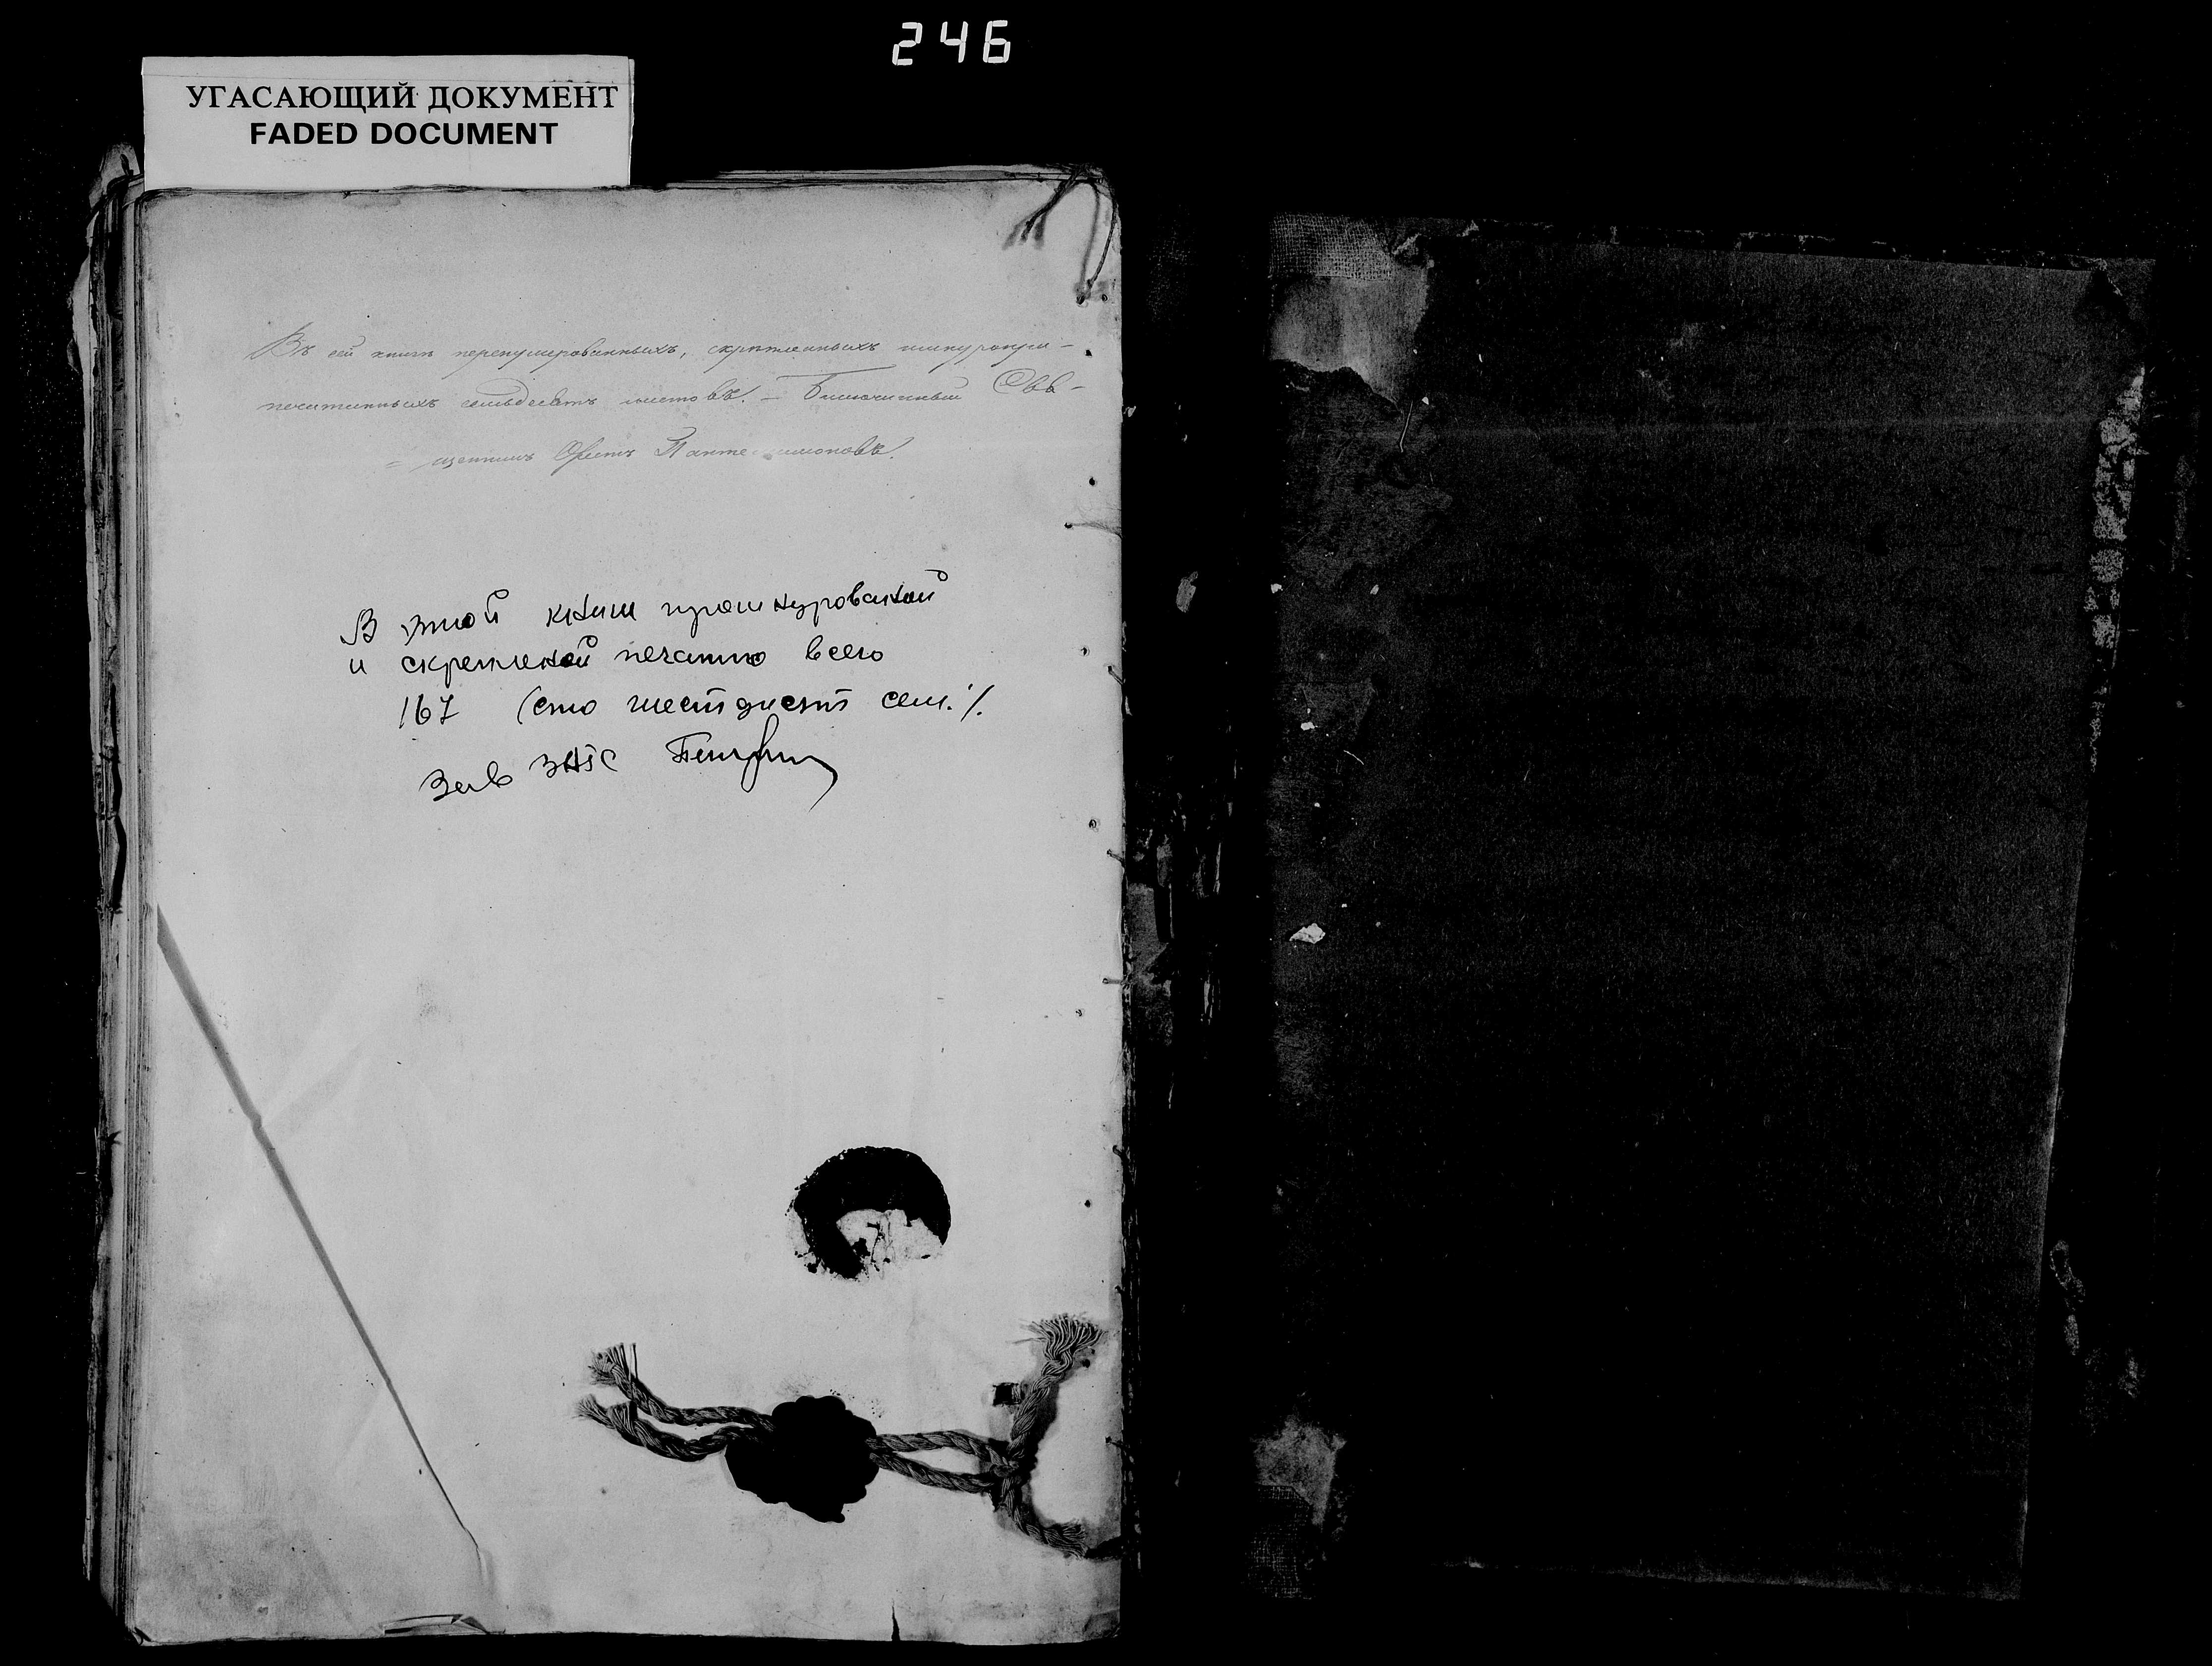 246
УГАСАЮЩИЙ ДОКУМЕНТ
FADED DOCUMENT
Въ сей книгѣ перенумерованныхъ, скрѣпленныхъ шнуропри-
печатанныхъ семьдесятъ листовъ. – Благочинный Свя-
= щенникъ Орестъ Пантелеимоновъ.
В этой книги прошнурованой
и скрепленой печатию всего
167 (сто шестдисят сем. /.
Зав ЗАГС